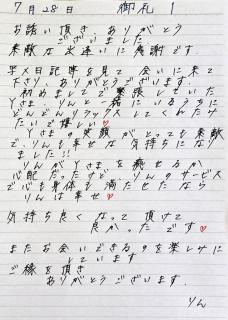 7月28日 御礼!
お誘い頂き ありがとう
ございました
素敵な出逢いに感謝です
写メ日記等を見て会いに来て
下さり ありがとうございます
初めましてで緊張していた
Yさま、りんと一緒にいるうちに
どんどんリラックスしてくれたみ
たいで嬉しい♥
Yさまの笑顔がとっても素敵
で、りんも幸せな気持ちになり
ました!!
りんがYさまを癒せるか
心配だったけど、りんのサービス
で心も身体も満たせたなら
りんは幸せ♥
気持ち良くなって頂けて
良かったです♥
またお会いできるのを楽しみに
しています
ご縁を頂き
ありがとうございます.
りん